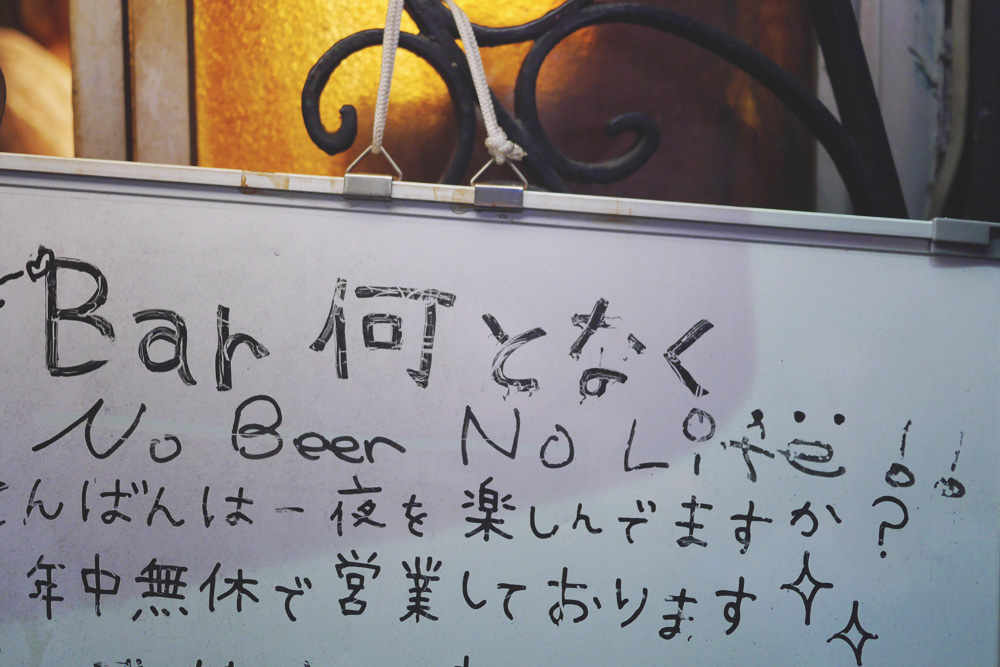 Bar 何となく
No Beer No Life!!
こんばんは一夜を楽しんでますか?
年中無休で営業しております